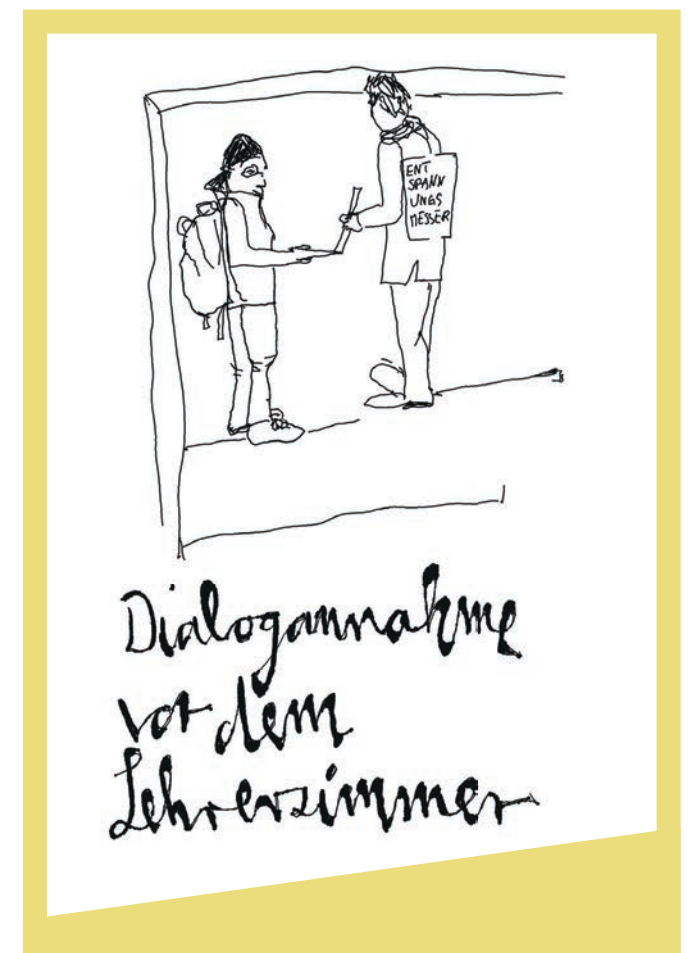 ENT
SPANN
UNGS
MESSER
Dialogannahme
vor dem
Lehrerzimmer